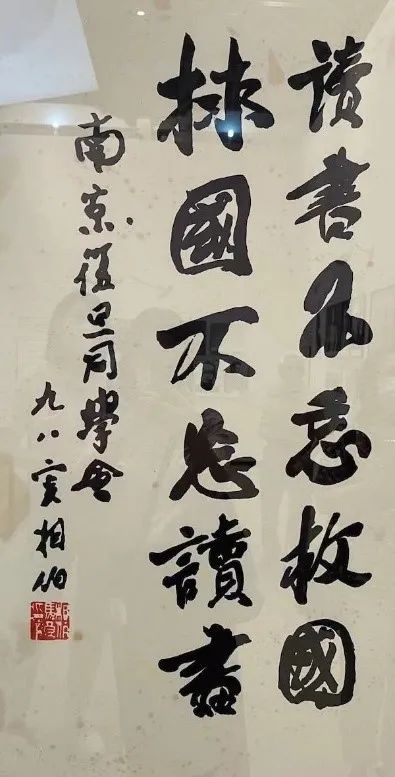 讀書不忘救國
捄國不忘讀書
南京復旦同學會
九八叟相伯